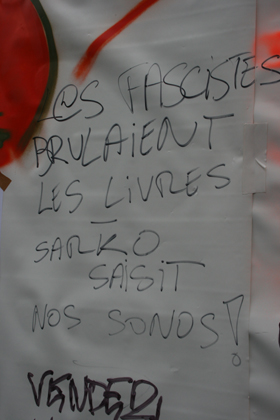 L@S FASCISTES
BRULAIENT
LES LIVRES
–
SARKO
SAISIT
NOS SONOS!
VENDED